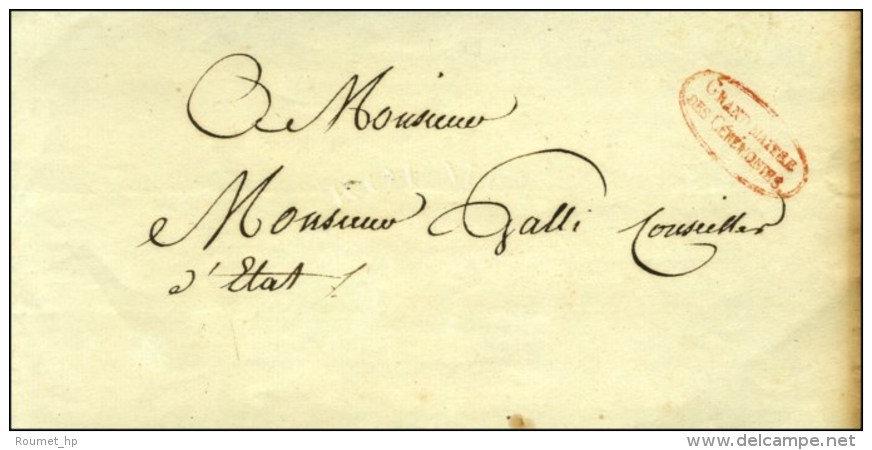 A Monsieur
GRAND MAITRE
DES CÉRÉMONIES.
Monsieur Galli Conseiller
d'Etat
Roumet_hp
www.delcampe.net